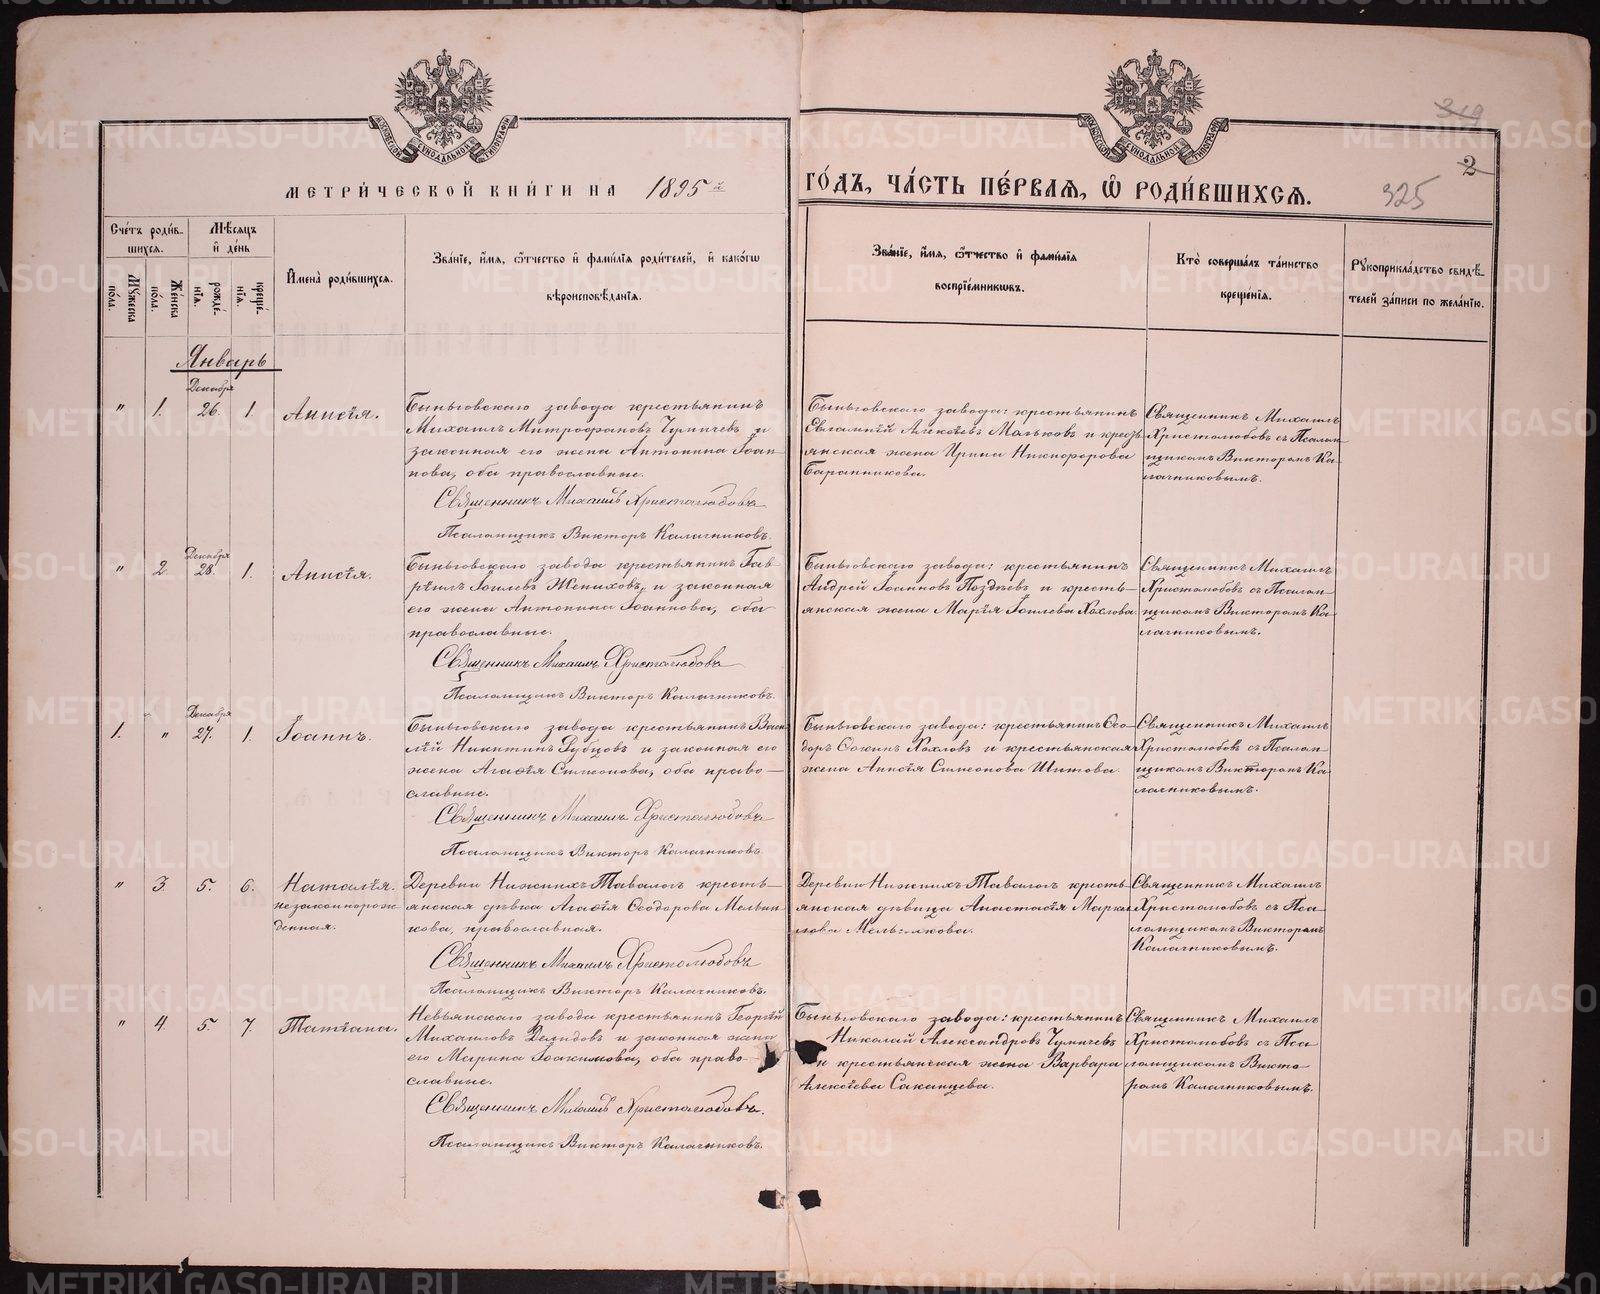 МЕТРИ́ЧЕСКОЙ КНИ́ГИ НА 1895 й
ГО́ДЪ, ЧА́СТЬ ПЕ́РВАѦ, Ѡ҆ РОДИ́ВШИХСѦ.
219
2
325
Счётъ роди́в-
шихсѧ.
Мѣ́сѧцъ
и҆ де́нь
Му́жеска
по́ла.
Же́нска
по́ла.
рожде́-
нїѧ.
креще́-
нїѧ.
И҆мена̀ роди́вшихсѧ.
Зва́нїе, и҆́мѧ, ѻ҆́тчество и҆ фами́лїѧ роди́телей, и҆ како́гѡ
вѣроисповѣ́данїѧ.
Зва́нїе, и҆́мѧ, ѻ҆́тчество и҆ фами́лїѧ
воспрїе́мникѡвъ.
Кто̀ соверша́лъ та́инство
креще́нїѧ.
Рꙋкоприкла́дство свидѣ́-
телей за́писи по жела́нїю.
Январь
" 1. Декабря 26. 1. Анисія.
Быньговскаго завода крестьянинъ
Михаилъ Митрофановъ Чумичевъ и
законная его жена Антонина Іоан-
нова, оба православные.
Священникъ Михаилъ Христолюбовъ
Псаломщикъ Викторъ Калачниковъ.
Быньговскаго завода: крестьянинъ
Евлампій Алексѣевъ Мальковъ и кресть-
янская жена Ирина Никифорова
Баранникова.
Священникъ Михаилъ
Христолюбовъ съ Псалом-
щикомъ Викторомъ Ка-
лачниковымъ.
" 2. Декабря 28. 1. Анисія.
Быньговскаго завода крестьянинъ Гав-
ріилъ Іоилевъ Жениховъ, и законная
его жена Антонина Іоаннова, оба
православные.
Священникъ Михаилъ Христолюбовъ
Псаломщикъ Викторъ Калачниковъ.
Быньговскаго завода: крестьянинъ
Андрей Іоанновъ Поздѣевъ и кресть-
янская жена Марія Іоилева Хохлова.
Священникъ Михаилъ
Христолюбовъ съ Псалом-
щикомъ Викторомъ Ка-
лачниковымъ.
1. " Декабря 27. 1. Іоаннъ.
Быньговскаго завода крестьянинъ Васи-
лій Никитинъ Зубцовъ и законная его
жена Агафія Симеонова, оба право-
славные.
Священникъ Михаилъ Христолюбовъ
Псаломщикъ Викторъ Калачниковъ
Быньговскаго завода: крестьянинъ Ѳео-
доръ Фокинъ Хохловъ и крестьянская
жена Анисія Симеонова Шитова.
Священникъ Михаилъ
Христолюбовъ съ Псалом-
щикомъ Викторомъ Ка-
лачниковымъ.
" 3. 5. 6. Наталія.
незаконнорож-
денная.
Деревни Нижнихъ-Тавологъ кресть-
янская дѣвка Агафія Ѳеодорова Мельни-
кова, православная.
Священникъ Михаилъ Христолюбовъ
Псаломщикъ Викторъ Калачниковъ.
Деревни Нижнихъ-Тавологъ кресть-
янская дѣвица Анастасія Марки-
лова Мельникова.
Священникъ Михаилъ
Христолюбовъ съ Пса-
ломщикомъ Викторомъ
Калачниковымъ.
" 4. 5. 7. Татіана.
Невьянскаго завода крестьянинъ Георгій
Михаиловъ Демидовъ и законная жена
его Марина Іоакимова, оба право-
славные.
Священникъ Михаилъ Христолюбовъ.
Псаломщикъ Викторъ Калачниковъ.
Быньговскаго завода: крестьянинъ
Николай Александровъ Чумичевъ
и крестьянская жена Варвара
Алексѣева Саканцева.
Священникъ Михаилъ
Христолюбовъ съ Пса-
ломщикомъ Викто-
ромъ Калачниковымъ.
METRIKI.GASO-URAL.RU